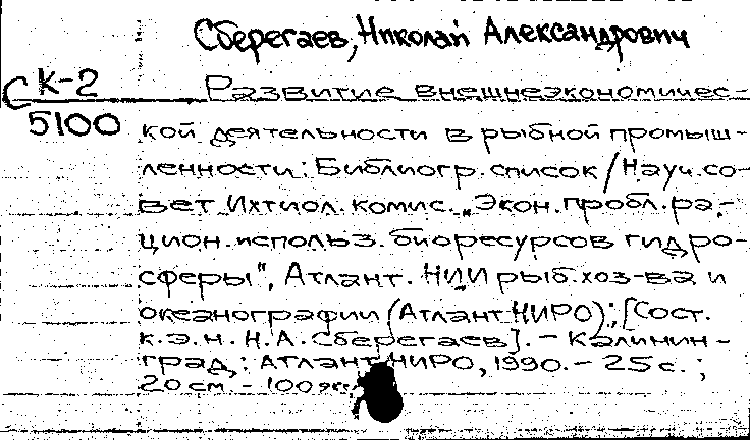 Сберегаев, Николай Александрович
С К-2
5100
Развитие внешнеэкономичес-
кой деятельности в рыбной промыш-
ленности: Библиогр. список / Науч. со-
вет Ихтиол. комис. „Экон. пробл. ра-
цион. использ. биоресурсов гидро-
сферы", Атлант. НИИ рыб. хоз-ва и
океанографии (АтлантНИРО); [Сост.
к.э.н. Н.А. Сберегаев]. – Калинин-
град, : АтлантНИРО, 1990. – 25 с. ;
20 см. – 100 экз